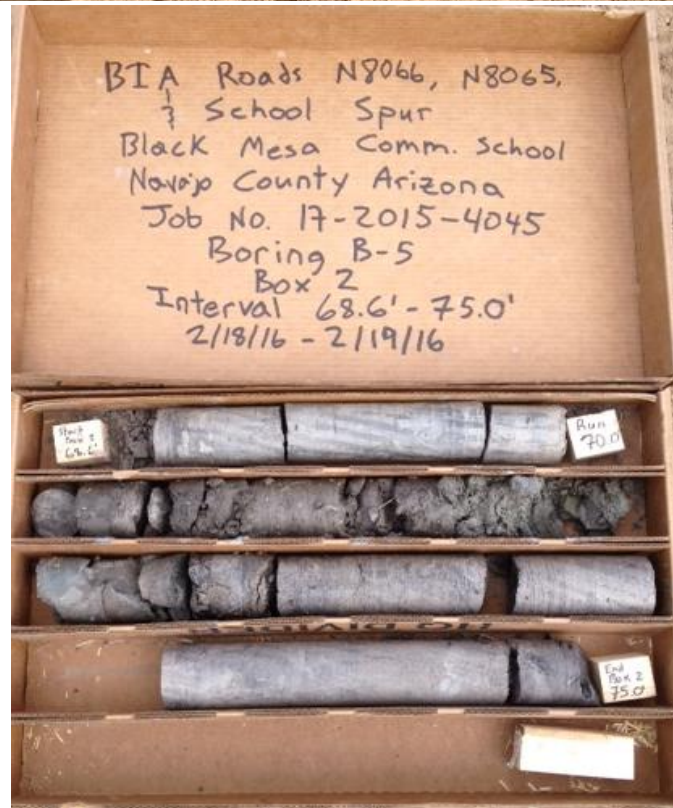 BIA Roads N8066, N8065,
& School Spur
Black Mesa Comm. School
Navajo County Arizona
Job No. 17-2015-4045
Boring B-5
Box 2
Interval 68.6' - 75.0'
2/18/16 - 2/19/16
Start
Box 2
68.6'
Run
70.0
End
Box 2
75.0